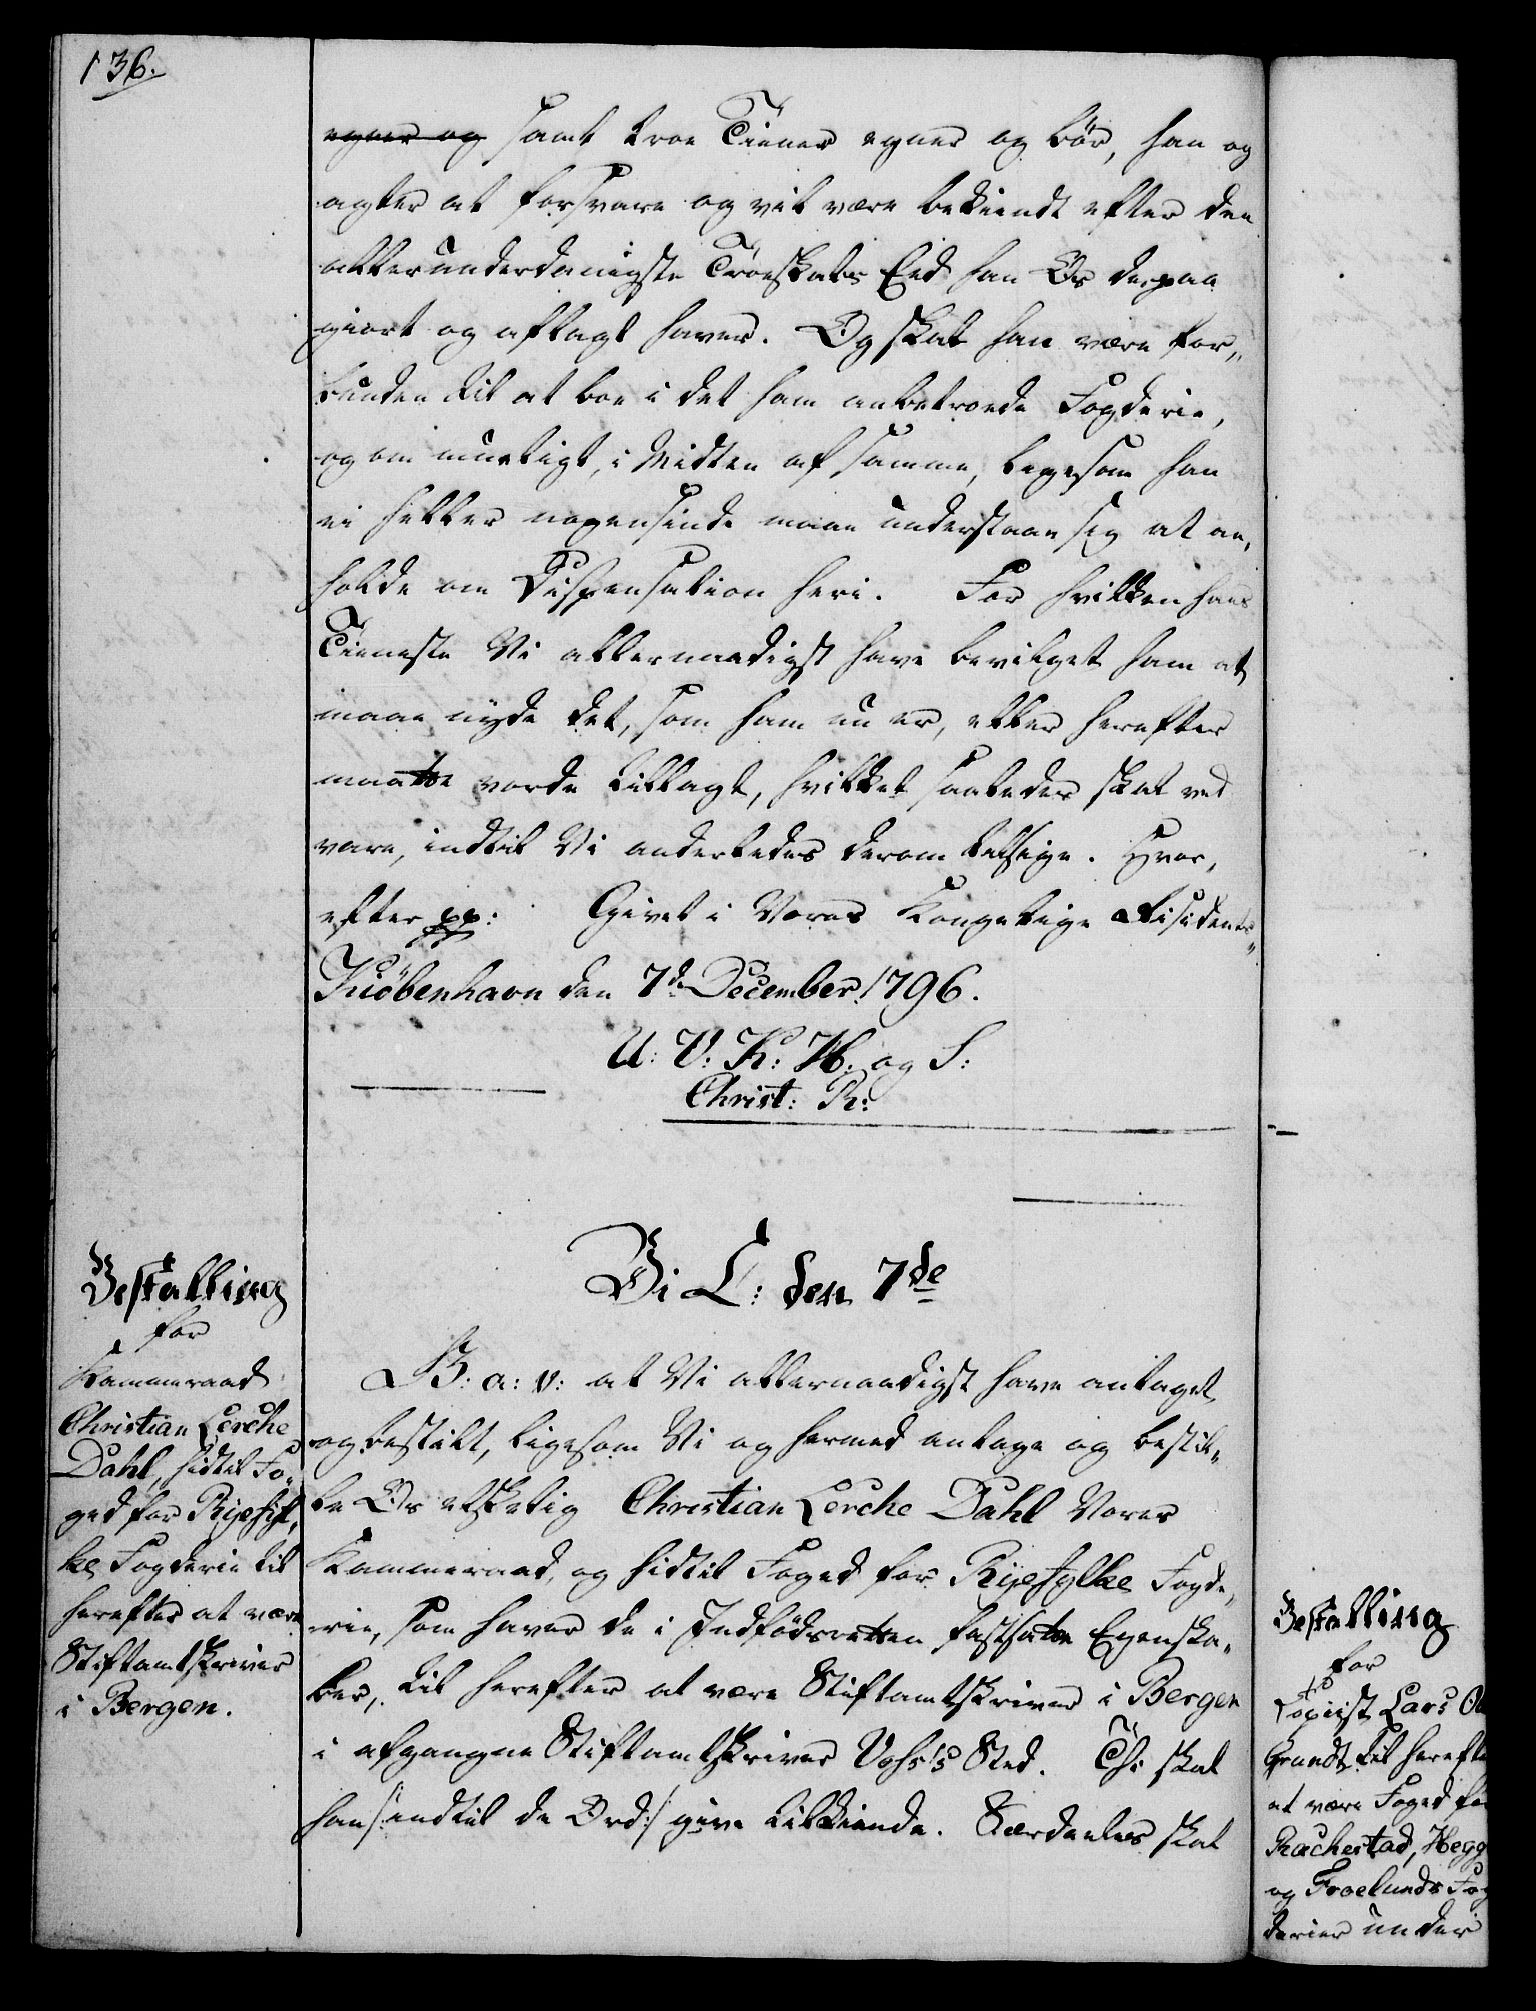 136.
egner og samt troe Tiener egner og bör, han og
agter at forsvare og vil være bekiendt efter den
allerunderdanigste Troeskabs Eed han Os derpaa
giort og aflagt haver. Og skal han være for„
bunden til at boe i det ham anbetroede Fogderie,
og om mueligt, i Midten af samme, ligesom han
ei heller nogensinde maae understaae sig at an„
holde om Dispensation heri. For hvilken hans
Tieneste Vi allernaadigst have bevilget ham at
maae nyde det, som ham nu er, eller herefter
maatte vorde tillagt, hvilket saaledes skal ved
vare, indtil Vi anderledes derom tilsige. Hvor„
efter pp: Givet i Vores Kongelige Residents„
Kiöbenhavn den 7de December 1796.
U: V: K: H: og S:
Christ: R:
Bestalling
for
Kammeraad
Christian Lerche
Dahl, hidtil Fo„
ged for Ryefyl„
ke Fogderie til
herefter at være
Stiftamtskriver
i Bergen.
Vi C: den 7de
G: a: v: at Vi allernaadigst have antaget
og bestilt, ligesom Vi og hermed antage og bestil„
le Os elskelig Christian Lerche Dahl Vores
Kammeraad, og hidtil Foged for Ryefylke Fogde„
rie, som haver de i Indfödsretten fastsatte Egenska„
ber, til herefter at være Stiftamtskriver i Bergen
i afgangne Stiftamtskriver Vohs's Sted. Thi skal
han /:indtil de Ord:/ give tilkiende. Særdeeles skal
Bestalling
for
Copiist Lars
Grandt til herefter
at være Foged for
Rachestad, Hegg
og Froelunds Fog
derier under